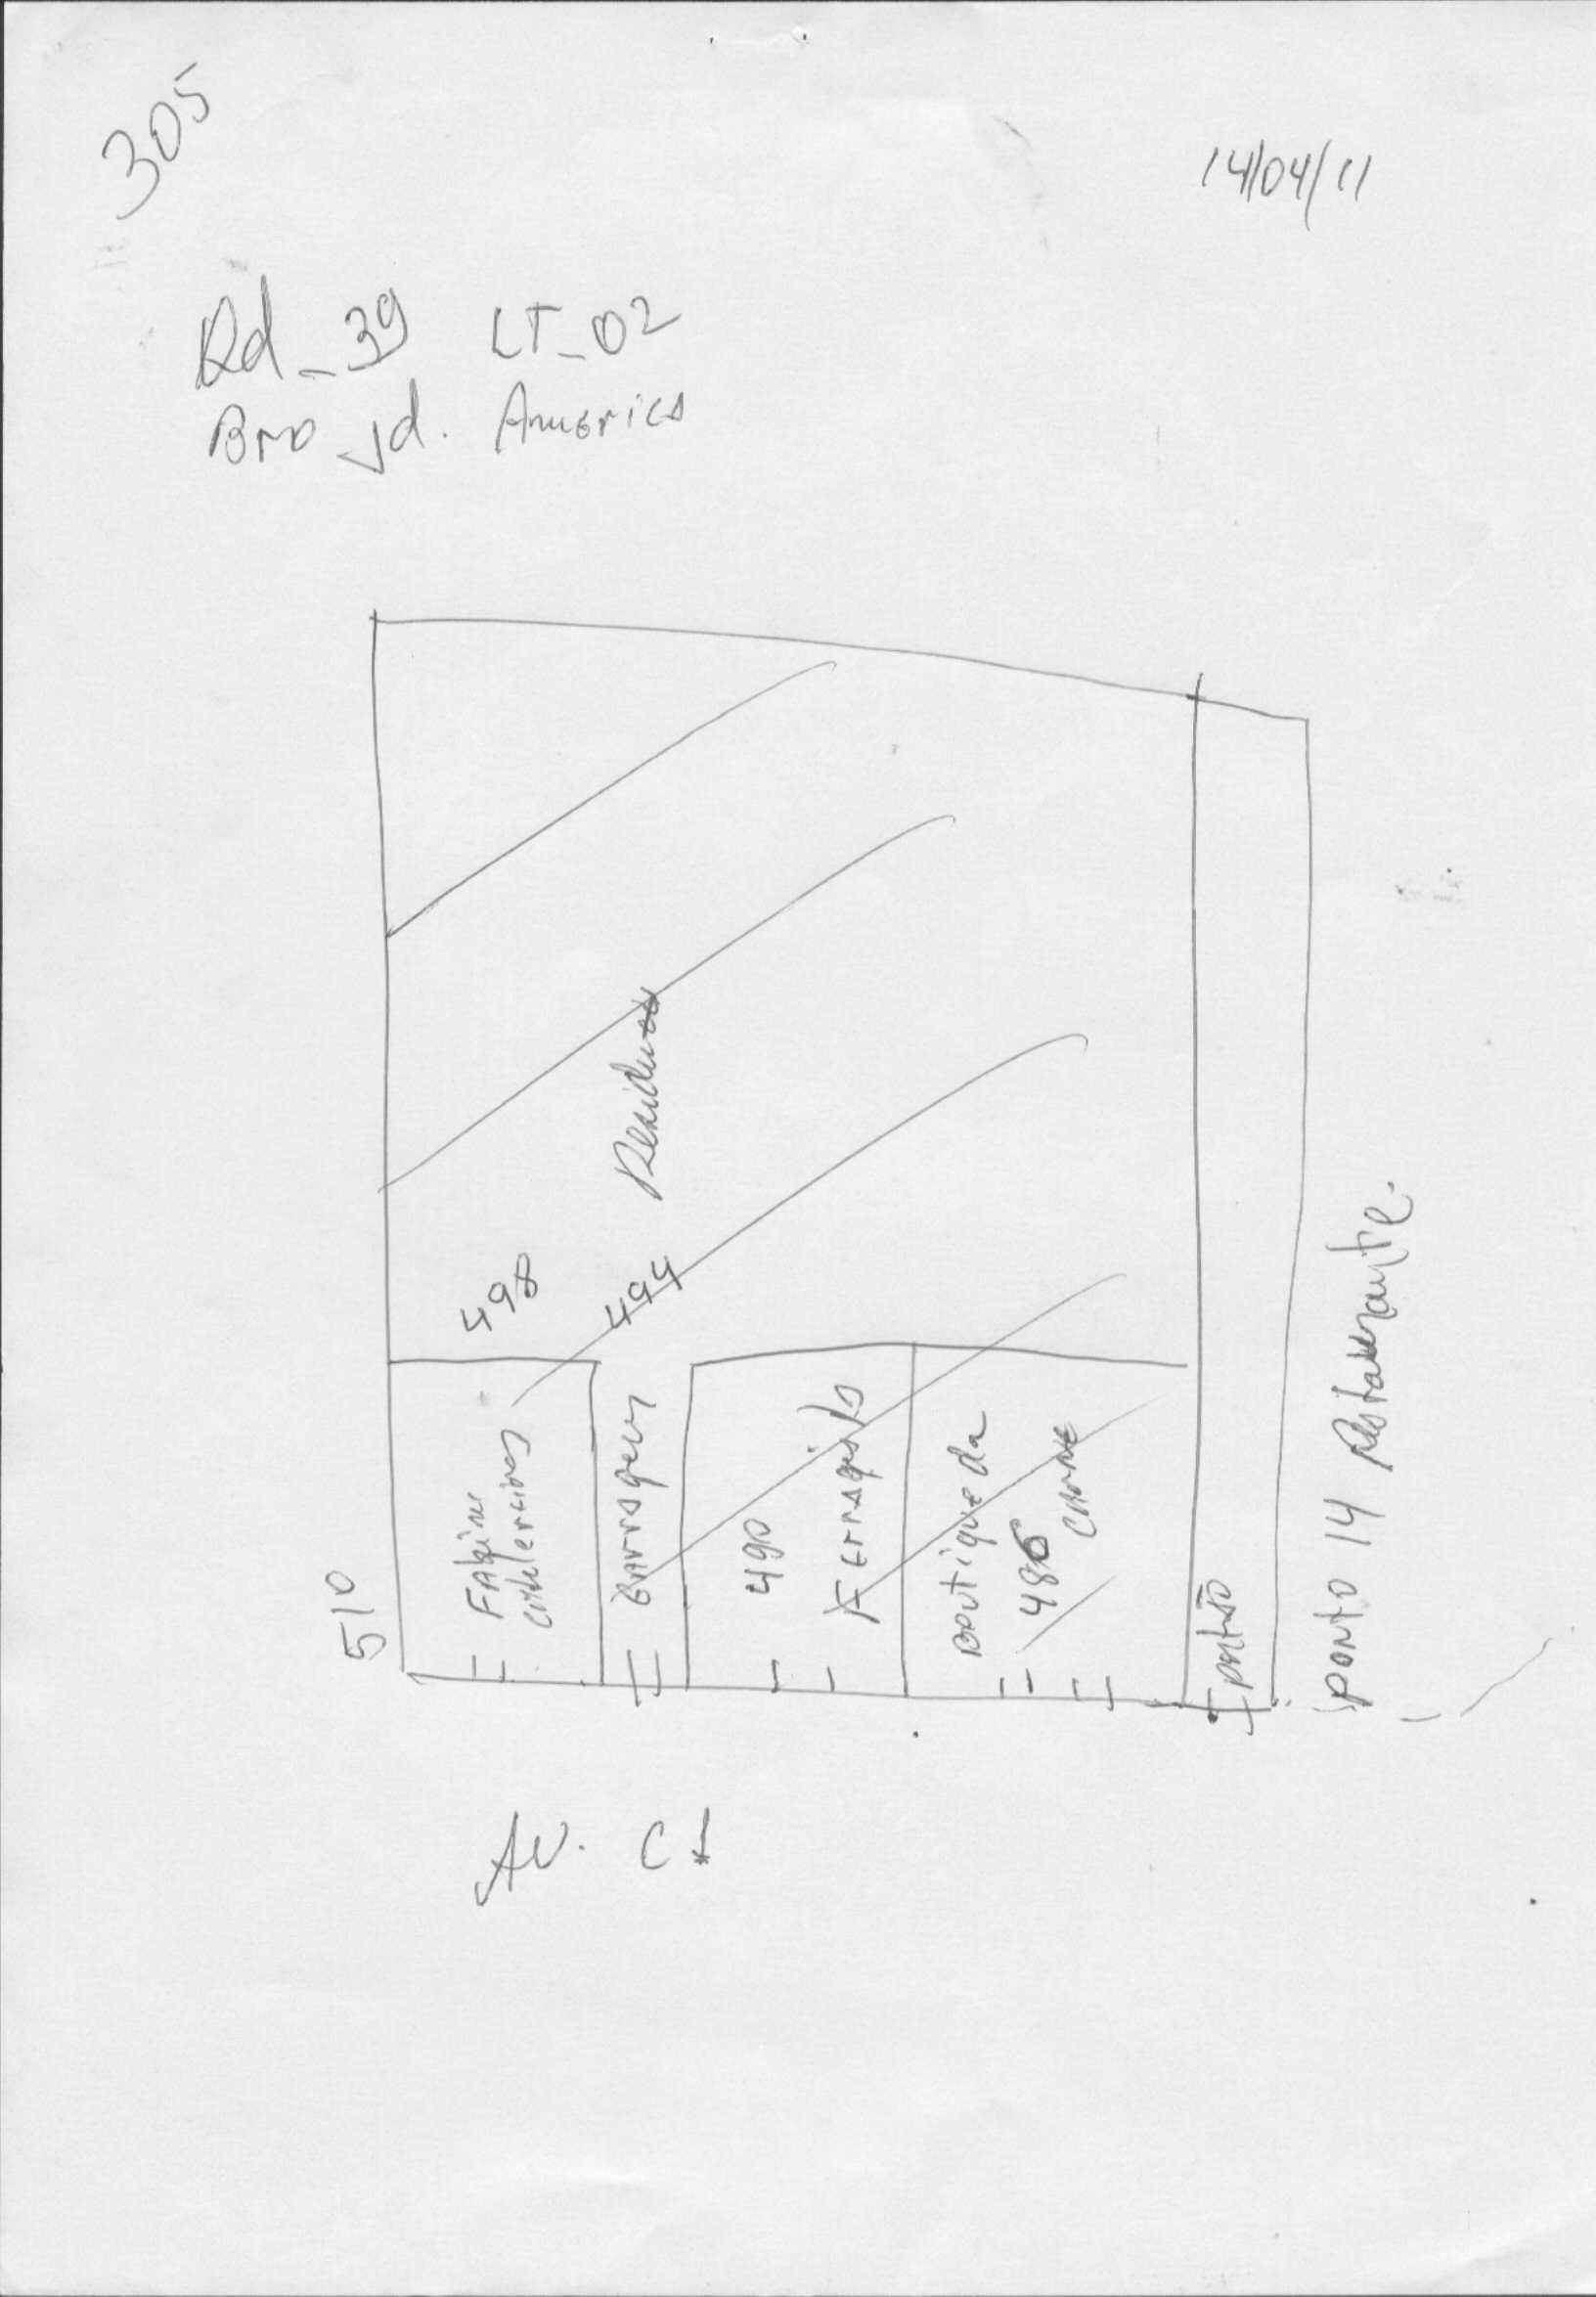 305
14/04/11
Qd_39 LT_02
Bro Jd. America
498
494
510
490
Ferragista
Boutique da
486
carne
portão
ponto 14 Restaurante.
Av. C1